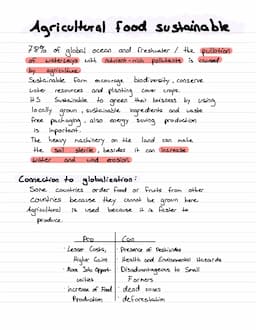 Agricultural food sustainable
78% of global ocean and freshwater / the pollution
of waterways with nutrient-rich pollutants is caused
by agriculture
Sustainable farm encourage biodiversity, conserve
water resources and planting cover crops.
Sustainable to green their business by using
locally grown, sustainable ingredients and waste
free packaging, also energy saving production
is important.
The heavy machinery on the land can make
the soil sterile, besides it can increase
water and wind erosion.
Connection to globalization:
Some countries order food or fruits from other
countries because they cannot be grown here
Agricultural is used because it is faster to
produce.
Pro Con
· Lesser Costs, · Presence of Pesticides
Higher Gains · Health and Environmental Hazards
· More Jobs Opport- · Disadvantageous to Small
unities Farmers.
· Increase of Food · dead zones
Production · deforestation